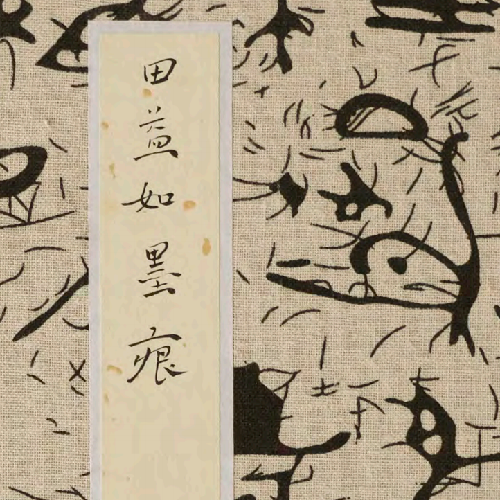 田益如墨痕